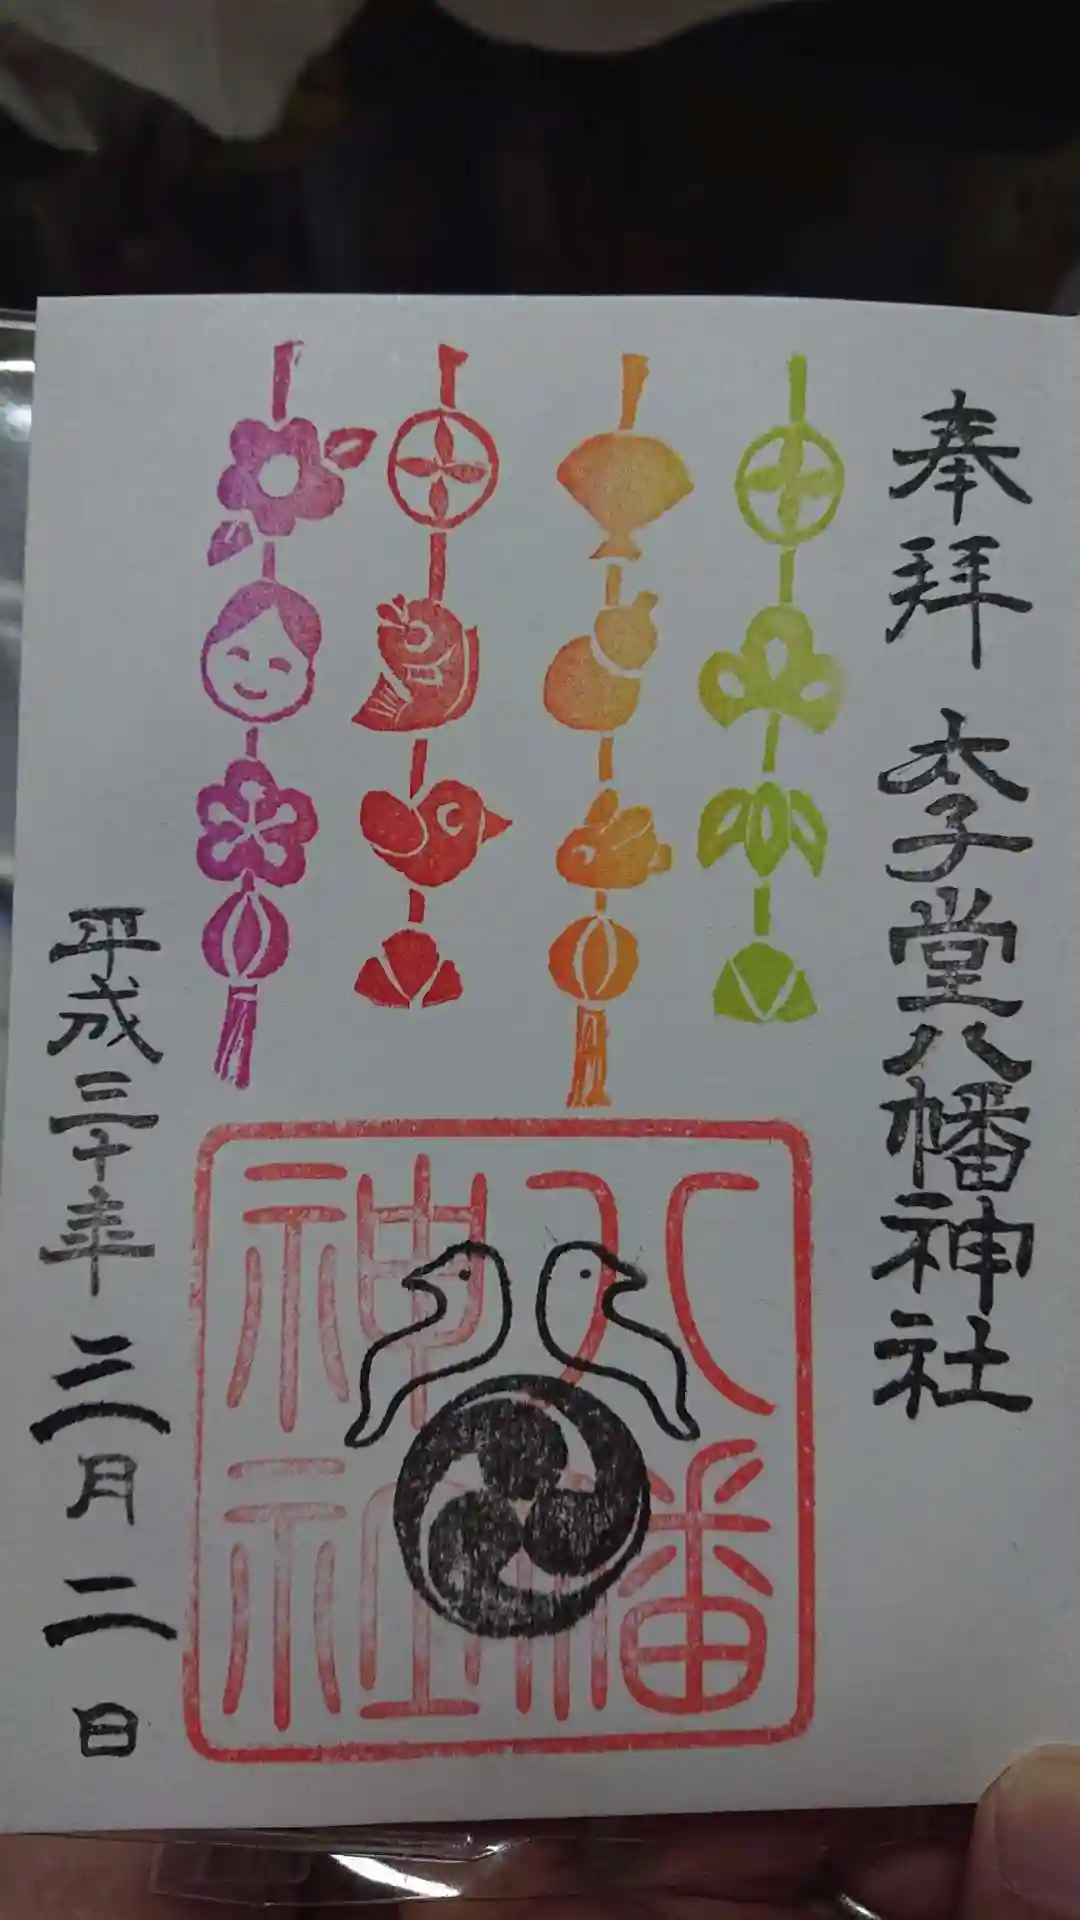 奉拝
太子堂八幡神社
八幡
神社
平成三十年三月二日